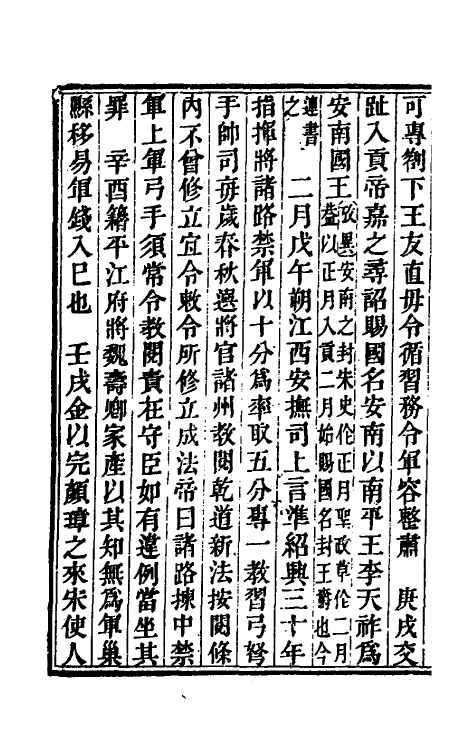 可專劄下王友直毋令循習務令軍容整肅　庚戌交
趾入貢帝嘉之尋詔賜國名安南以南平王李天祚爲
安南國王攷異安南之封朱史作正月聖政草作二月
蓋以正月入貢二月始賜國名封王爵也今
連書
之　二月戊午朔江西安撫司上言準紹興三十年
指揮將諸路禁軍以十分爲率取五分專一教習弓弩
手帥司每歲春秋選將官諸州教閱乾道新法按閱條
內不曾修立宜令敕令所修立成法帝曰諸路揀中禁
軍上軍弓手須常令教閱責在守臣如有違例當坐其
罪　辛酉籍平江府將魏壽卿家產以其知無爲軍巢
縣移易軍錢入已也　壬戌金以完顏璋之來朱使人